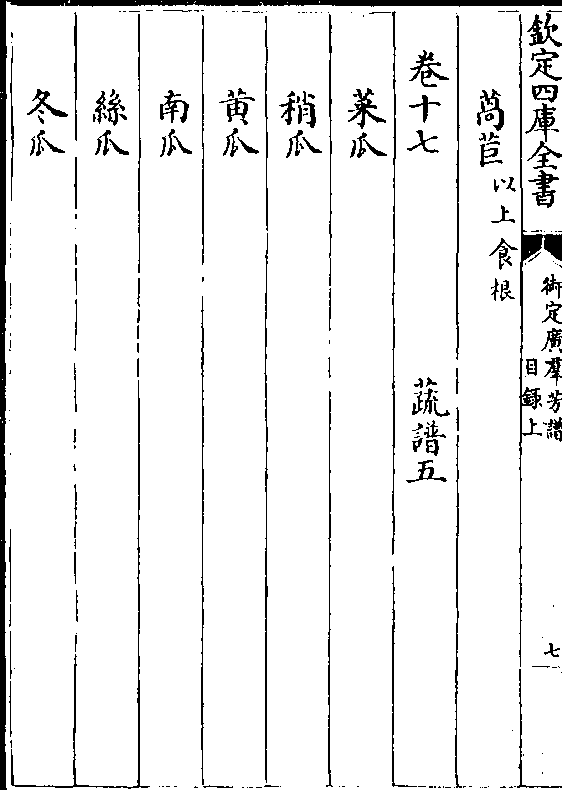 欽定四庫全書
御定廣羣芳譜
目錄上
七
萵苣以上食根
卷十七 蔬譜五
菜瓜
稍瓜
黄瓜
南瓜
絲瓜
冬瓜